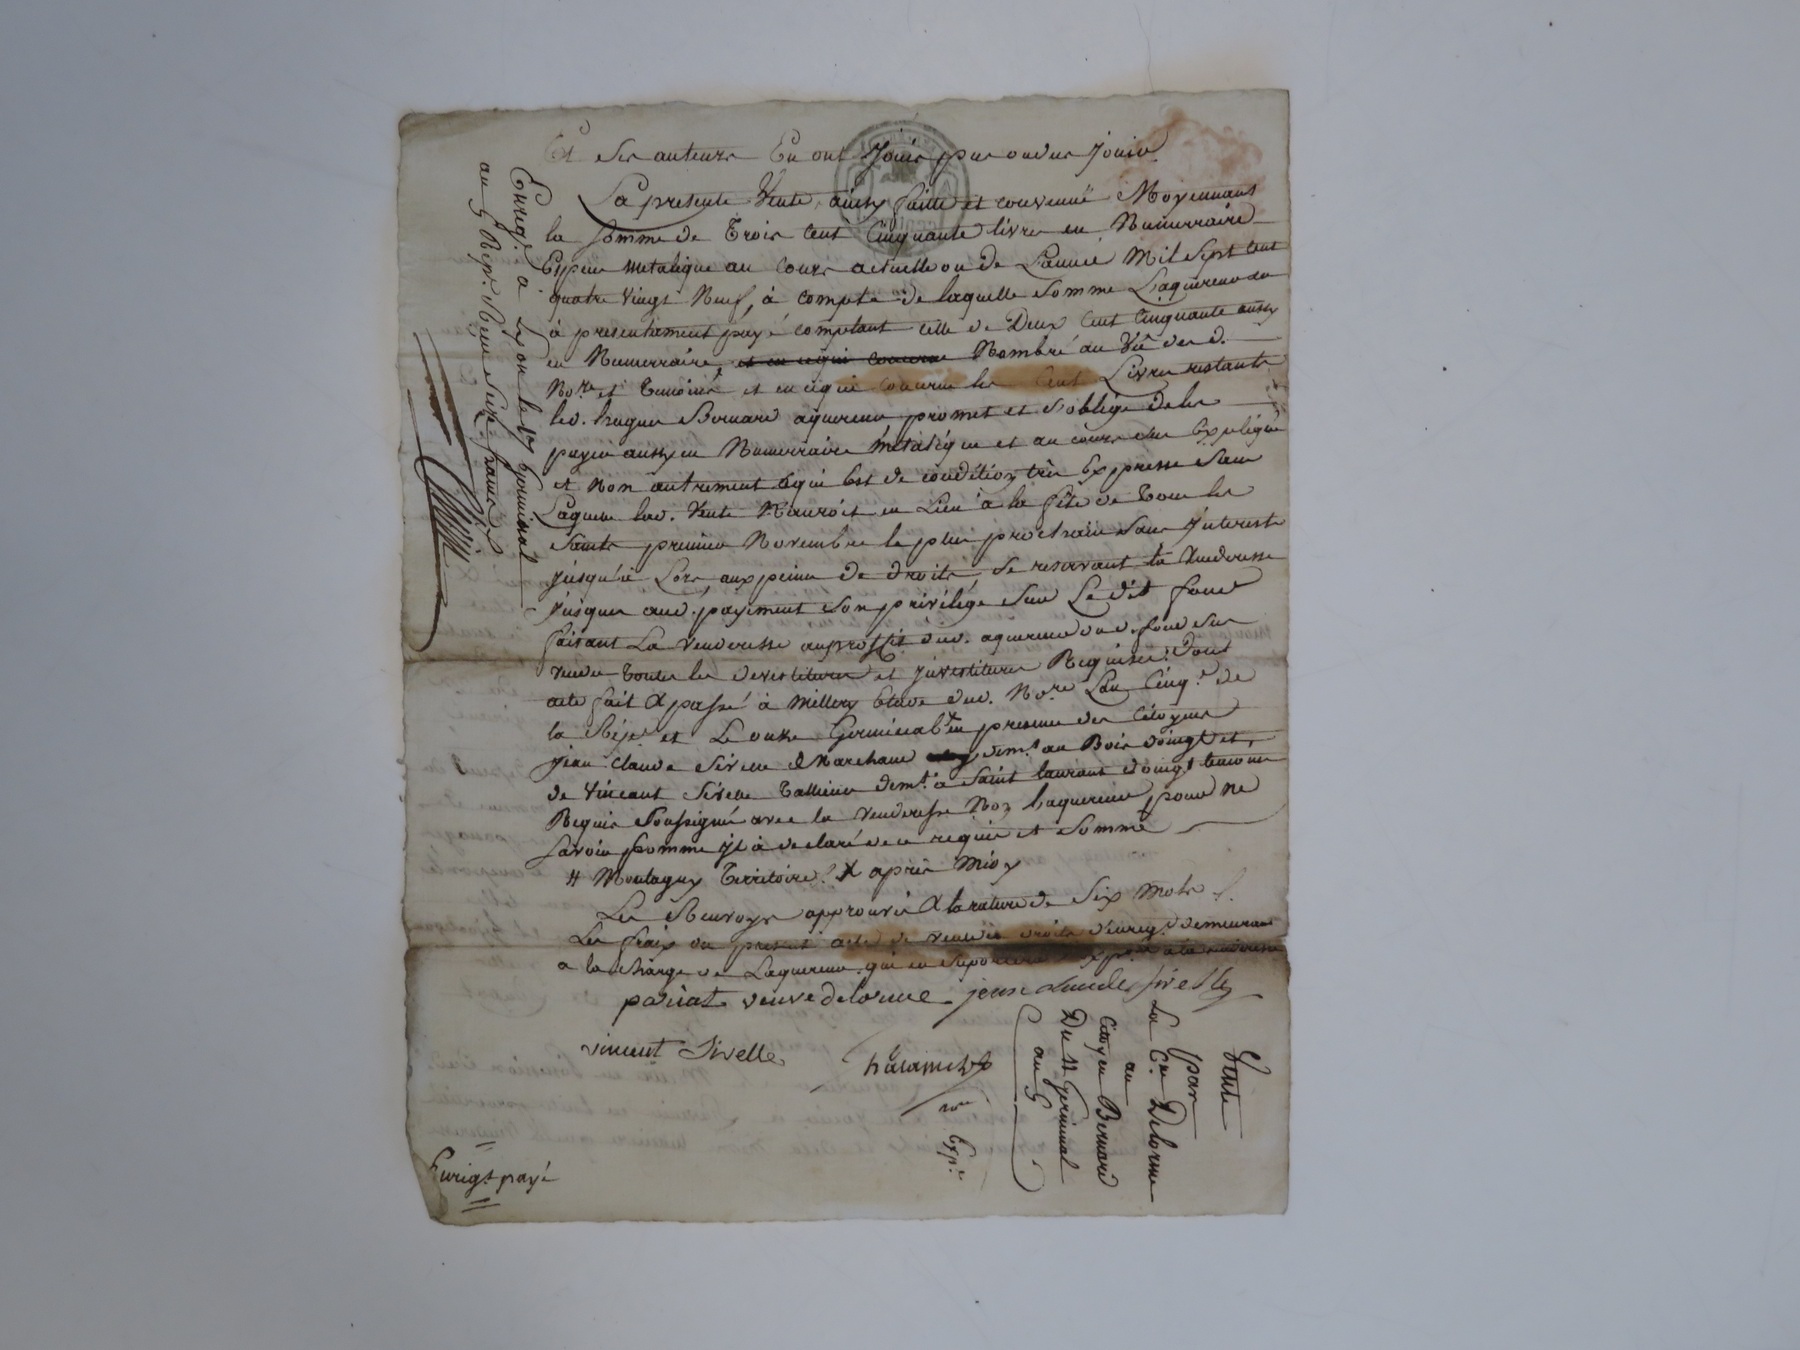 Et ses auteurs En ont Jouis pue ou dus Jouir
La presente Vente, ainsy faitte et convenue Moyennant
la somme de Trois Cent Cinquante livres en Numerraire
Espece metalique au cours actuelle ou de L'année Mil Sept Cent
quatre Vingt Neuf, à compte de laquelle somme L'aquereur en
à presentement payé comptant celle de Deux Cent Cinquante aussy
en Numerraire, Nombré au Vû de d.
No.re et Temoins et en ce qui concerne les Cent Livres restants
led. hugue Bernard aquereur promet et s'oblige de les
payer aussy en Numerraire métalique et au cours cher Expliqué
et Non autrement ce qui Est de condition très Expresse sans
Laquelle lad. Vente N'auroit eu Lieu à la fête de Tous les
saints premier Novembre le plus prochain sans Jnterests
jusqu'à Lors, aux peines de droits, se reservant la Venderesse
jusques aud. payement son privilége sur Le dit fond
faisant La venderesse au proffit dud. aquereur dud. fond sus
vendu toutes les devestitures et jnvestitures Requises: Dont
acte fait & passé à Millery Etude dud. No.re L'an Cinq.e de
la Rép.e et Le onze Germinal en presence des Citoyens
jean Claude Sivelle Marchand dem.t au Bois d'oingt et,
de Vincent Sivelle Tallieur dem.t à Saint laurent d'oingt temoins
Requis Soussignés avec la venderesse Non l'aquereur pour ne
savoir comme jl à declaré de ce requis et Sommé
# Montagny Territoire. X après Midy
Les Renvoys approuvés & la rature de Six Mots
Les fraix du present acte de vente et droits d'enreg.t demeurant
a la charge de L'aquereur qui en suportera
pariat veuve delorme jean Claude Sivelle
vincent Sivelle
No.re
Exp.n
Enregt payé
Enreg. a Lyon le 17 Germinal
an 5 Rep. Reçu Seize francs
Vente
par
La C.ne Delorme
au
Citoyen Bernard
Du 11 Germinal
an 5